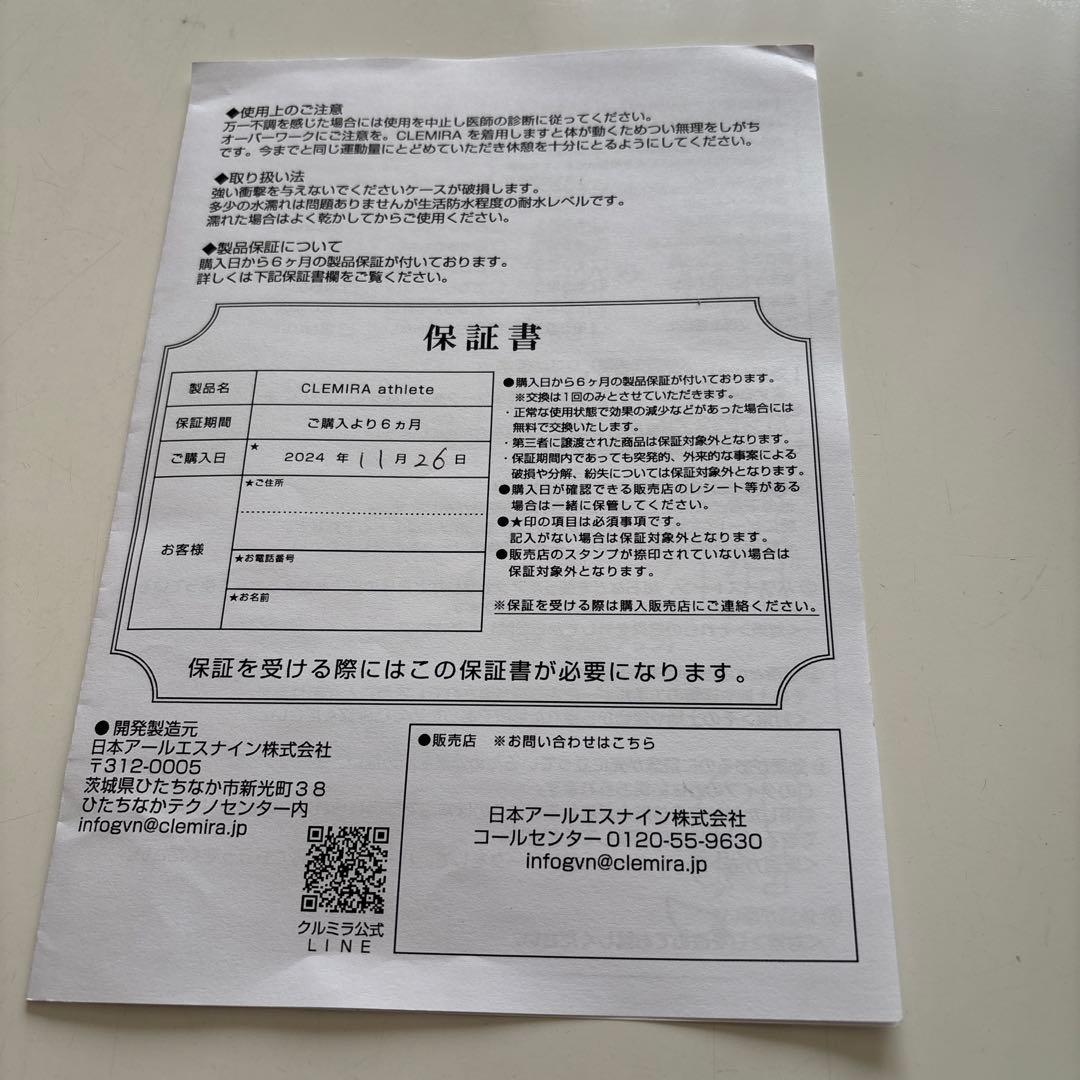 ◆使用上のご注意
万一不調を感じた場合には使用を中止し医師の診断に従ってください。
オーバーワークにご注意を。CLEMIRA を着用しますと体が動くためつい無理をしがち
です。今までと同じ運動量にとどめていただき休憩を十分にとるようにしてください。
◆取り扱い法
強い衝撃を与えないでくださいケースが破損します。
多少の水濡れは問題ありませんが生活防水程度の耐水レベルです。
濡れた場合はよく乾かしてからご使用ください。
◆製品保証について
購入日から6ヶ月の製品保証が付いております。
詳しくは下記保証書欄をご覧ください。
保証書
製品名 CLEMIRA athlete
保証期間 ご購入より6ヵ月
ご購入日 ★ 2024 年 11 月 26 日
お客様
★ご住所
★お電話番号
★お名前
●購入日から6ヶ月の製品保証が付いております。
※交換は1回のみとさせていただきます。
・正常な使用状態で効果の減少などがあった場合には
無料で交換いたします。
・第三者に譲渡された商品は保証対象外となります。
・保証期間内であっても突発的、外来的な事案による
破損や分解、紛失については保証対象外となります。
●購入日が確認できる販売店のレシート等がある
場合は一緒に保管してください。
●★印の項目は必須事項です。
記入がない場合は保証対象外となります。
●販売店のスタンプが捺印されていない場合は
保証対象外となります。
※保証を受ける際は購入販売店にご連絡ください。
保証を受ける際にはこの保証書が必要になります。
●開発製造元
日本アールエスナイン株式会社
〒312-0005
茨城県ひたちなか市新光町38
ひたちなかテクノセンター内
infogvn@clemira.jp
クルミラ公式
LINE
●販売店 ※お問い合わせはこちら
日本アールエスナイン株式会社
コールセンター 0120-55-9630
infogvn@clemira.jp